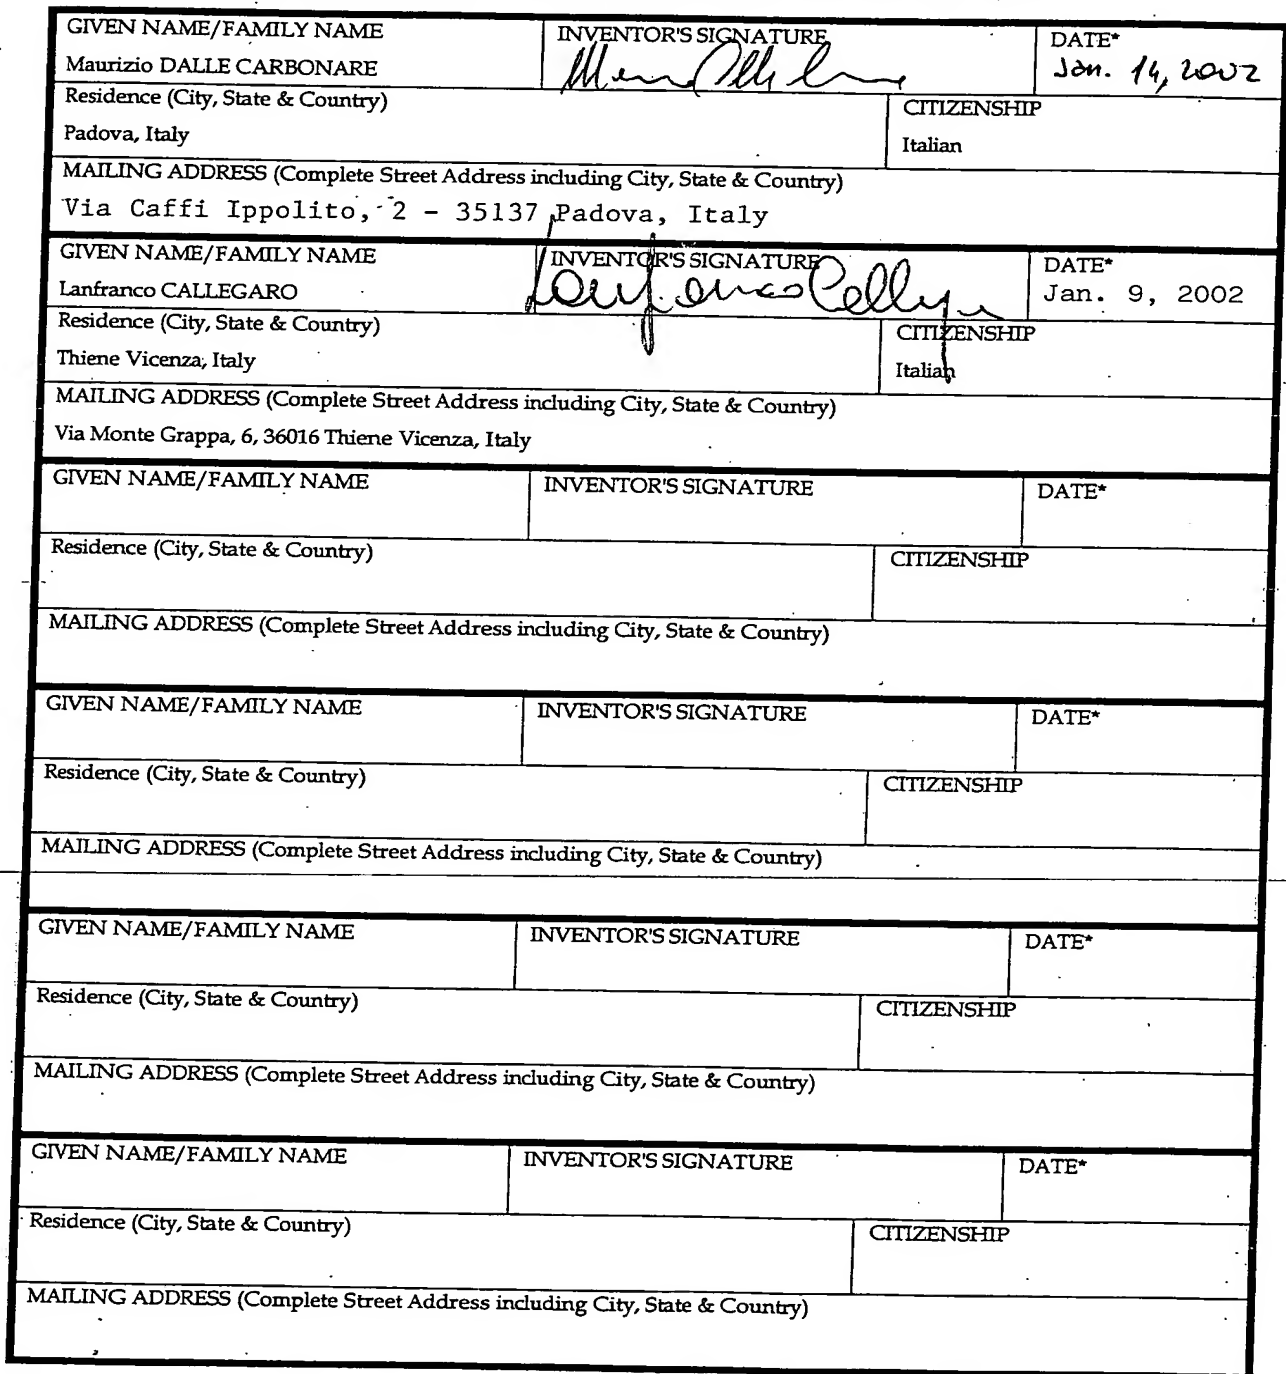 GIVEN NAME/FAMILY NAME INVENTOR'S SIGNATURE DATE*
Maurizio DALLE CARBONARE Jan. 14, 2002
Residence (City, State & Country) CITIZENSHIP
Padova, Italy Italian
MAILING ADDRESS (Complete Street Address including City, State & Country)
Via Caffi Ippolito, 2 - 35137 Padova, Italy
GIVEN NAME/FAMILY NAME INVENTOR'S SIGNATURE DATE*
Lanfranco CALLEGARO Jan. 9, 2002
Residence (City, State & Country) CITIZENSHIP
Thiene Vicenza, Italy Italian
MAILING ADDRESS (Complete Street Address including City, State & Country)
Via Monte Grappa, 6, 36016 Thiene Vicenza, Italy
GIVEN NAME/FAMILY NAME INVENTOR'S SIGNATURE DATE*
Residence (City, State & Country) CITIZENSHIP
MAILING ADDRESS (Complete Street Address including City, State & Country)
GIVEN NAME/FAMILY NAME INVENTOR'S SIGNATURE DATE*
Residence (City, State & Country) CITIZENSHIP
MAILING ADDRESS (Complete Street Address including City, State & Country)
GIVEN NAME/FAMILY NAME INVENTOR'S SIGNATURE DATE*
Residence (City, State & Country) CITIZENSHIP
MAILING ADDRESS (Complete Street Address including City, State & Country)
GIVEN NAME/FAMILY NAME INVENTOR'S SIGNATURE DATE*
Residence (City, State & Country) CITIZENSHIP
MAILING ADDRESS (Complete Street Address including City, State & Country)